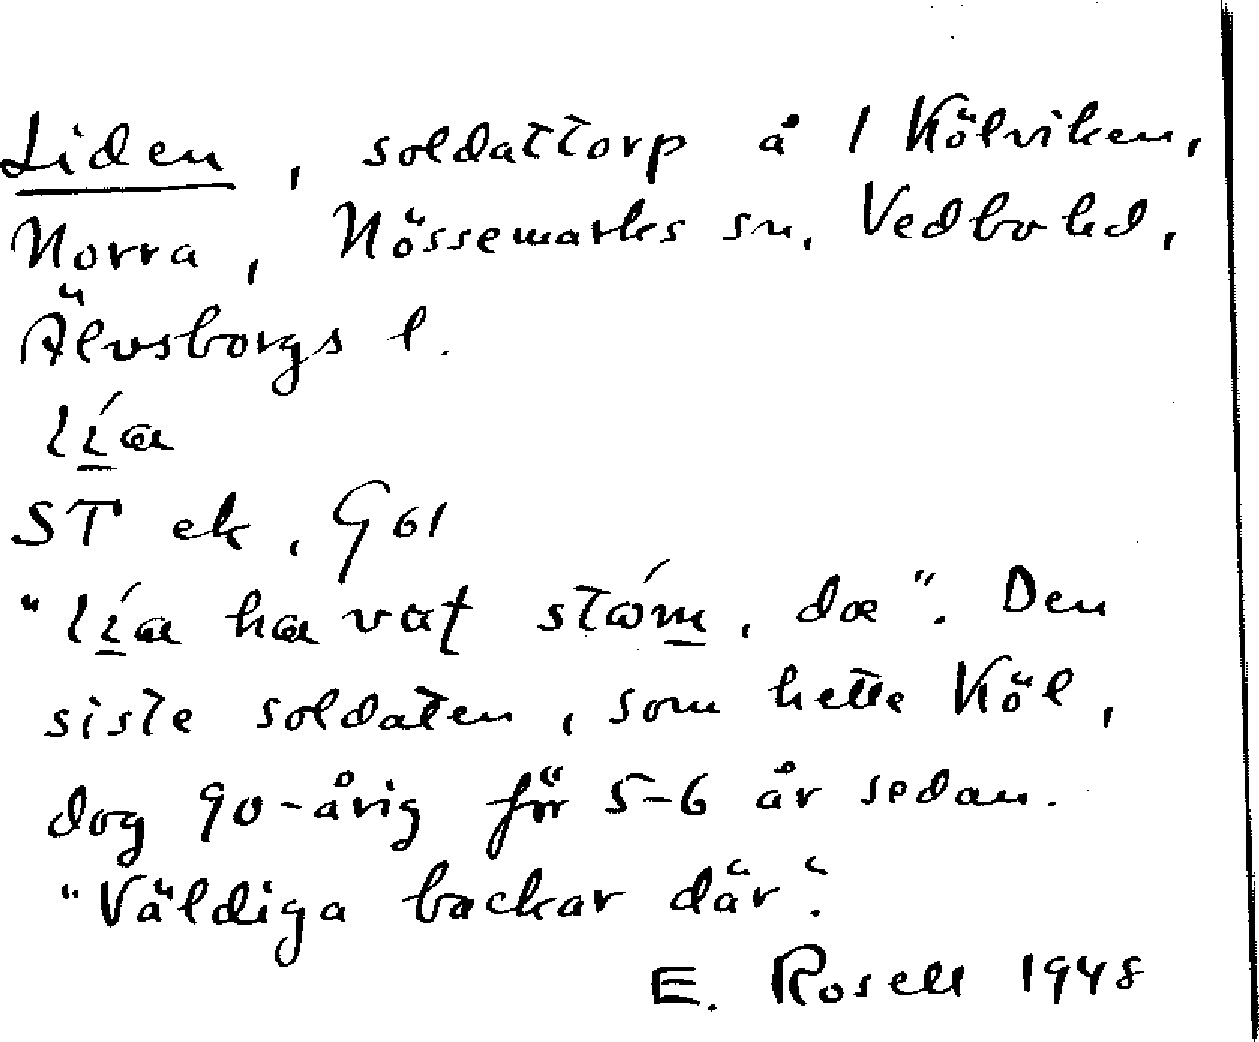 Liden, soldattorp å 1 Kölviken,
Norra, Nössemarks sn, Vedbo hd,
Älvsborgs l.
líɑ
ST ek, G 61
"líɑ hɑ vɑt stóm, dɑ". Den
siste soldaten, som hette Köl,
dog 90-årig för 5-6 år sedan.
"Väldiga backar där".
E. Rosell 1948